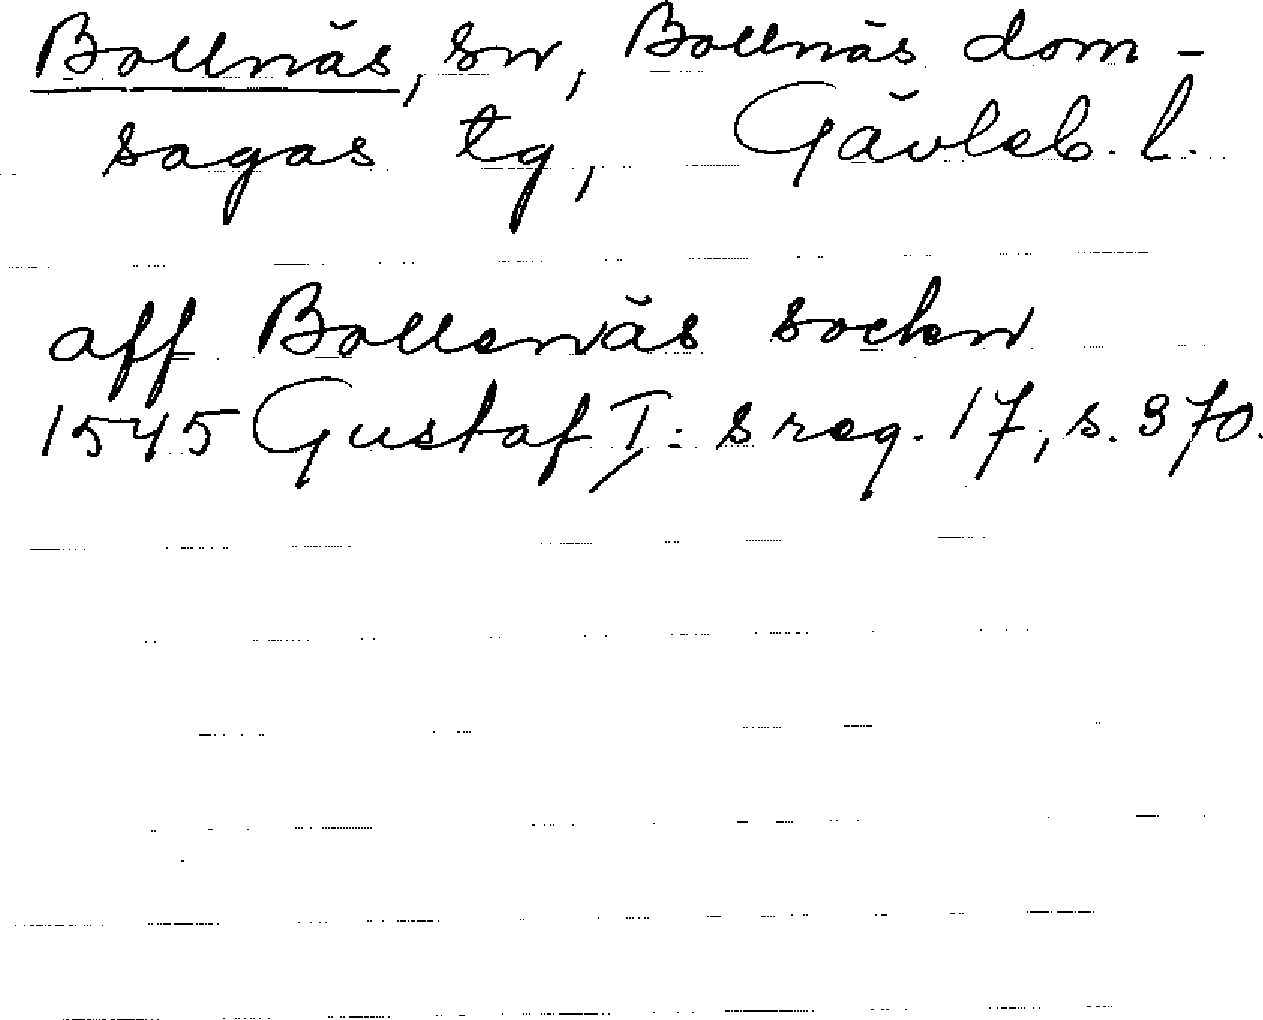 Bollnäs, sn, Bollnäs dom-
sagas tg, Gävleb. l.
aff Bollenäs sockn
1545 Gustaf I:s reg. 17, s. 370.